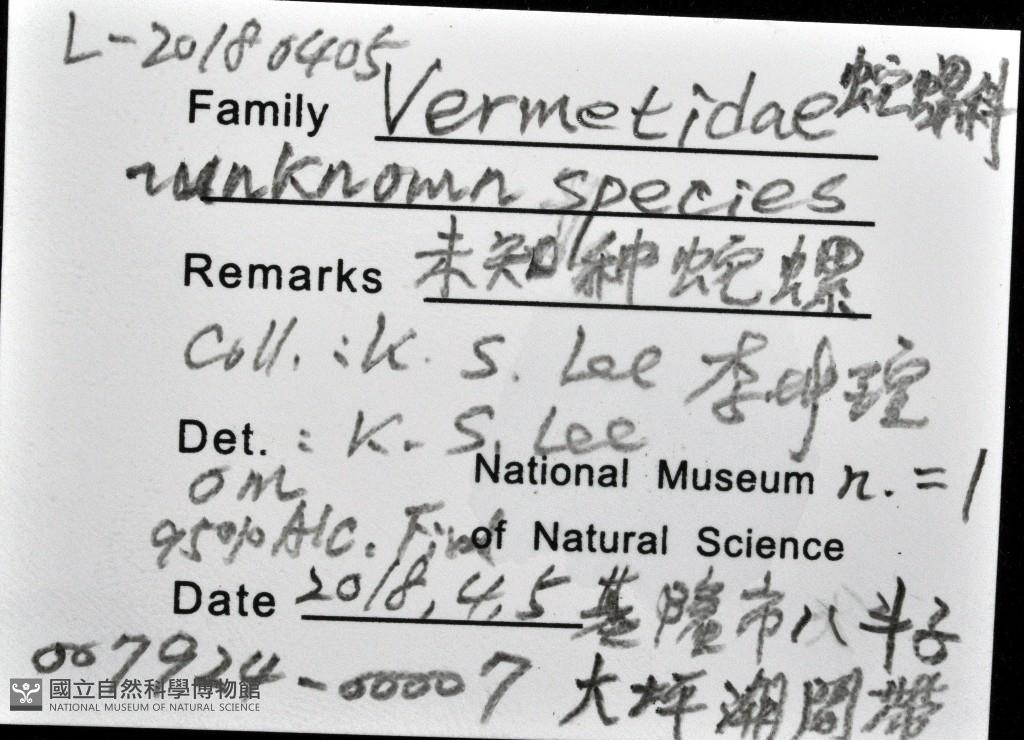 L-20180405
Family Vermetidae 蛇螺科
unknown species
Remarks 未知种蛇螺
Coll.: K. S. Lee 李坤瑄
Det.: K. S. Lee
0m National Museum n.=1
95% Alc. of Natural Science
Date 2018,4,5 基隆市八斗子
007924-00007 大坪潮間帶
國立自然科學博物館
NATIONAL MUSEUM OF NATURAL SCIENCE